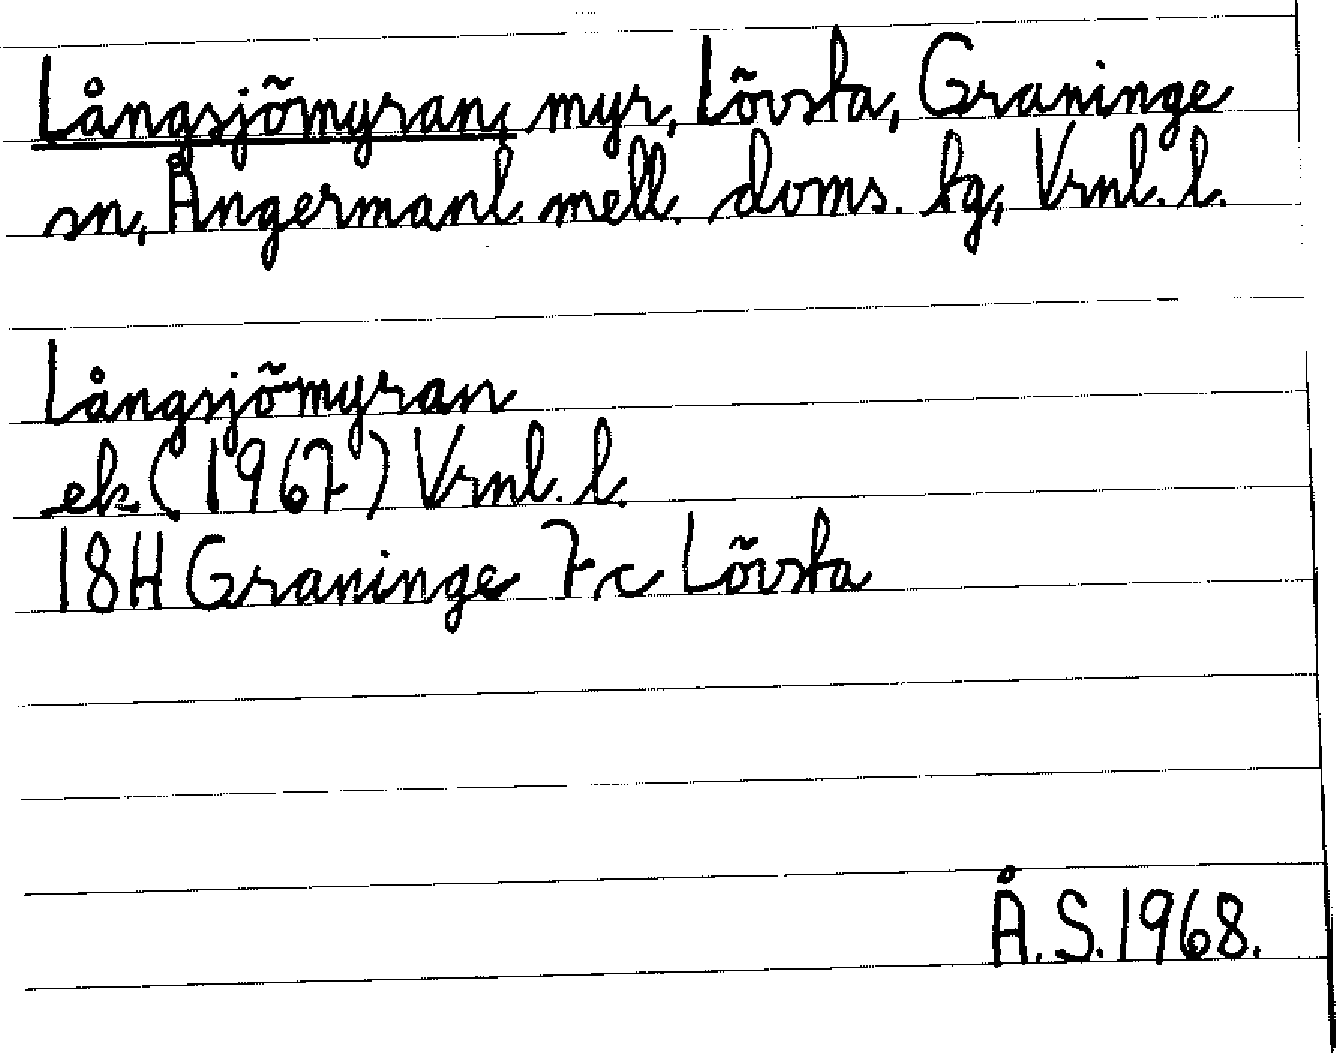 Långsjömyran, myr, Lövsta, Graninge
sn, Ångermanl. mell. doms. tg, Vrnl. l.
Långsjömyran
ek (1967) Vrnl. l.
18H Graninge 7c Lövsta
Å.S. 1968.